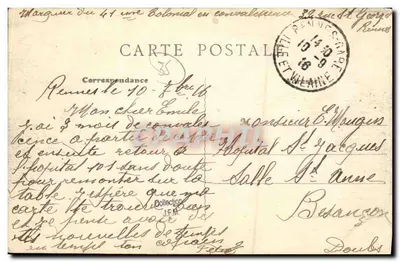 Marguer du 41 ème Colonial en convalescence 32 rue St Georges
Rennes
CARTE POSTALE
RENNES-GARE
14 10
10 - 9
16
ILLE-ET-VILAINE
Correspondance
Rennes le 10 - 7bre 16
Mon cher Emile
J'ai 3 mois de convales
cence à partir
et ensuite retour à
l'hopital 101 sans doute
pour remonter sur la
table J'espère que ma
carte te trouvera
avoir de
tes nouvelles de temps
en temps ton copain
Monsieur E. Mougin
Hopital St Jacques
Salle Ste Anne
Besançon
Doubs
Collection